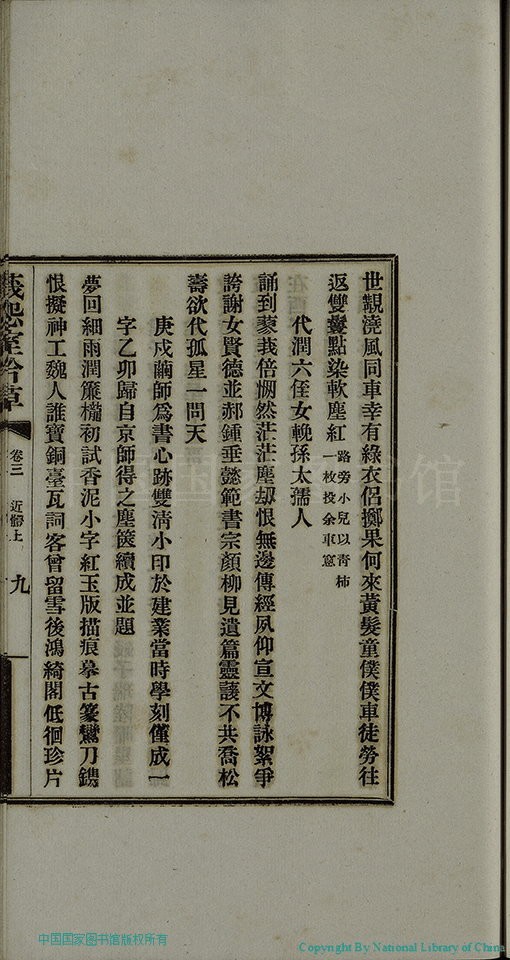 世覩澆風同車幸有綠衣侶擲果何來黃髮童僕僕車徒勞往
返雙鬟點染軟塵紅路旁小兒以青柿一枚投余車窗
代潤六侄女輓孫太孺人
誦到蓼莪倍惘然茫茫塵刧恨無邊傳經夙仰宣文博詠絮爭
誇謝女賢德並郝鍾垂懿範書宗顏柳見遺篇靈諼不共喬松
壽欲代孤星一問天
庚戍繭師爲書心跡雙淸小印於建業當時學刻僅成一
字乙卯歸自京師得之塵篋續成並題
夢回細雨潤簾櫳初試香泥小字紅玉版描痕摹古篆鸞刀鐫
恨擬神工魏人誰寶銅臺瓦詞客曾留雪後鴻綺閣低徊珍片
莪怨室吟草
卷三
近體上
九
中国国家图书馆版权所有
Copyright By National Library of China